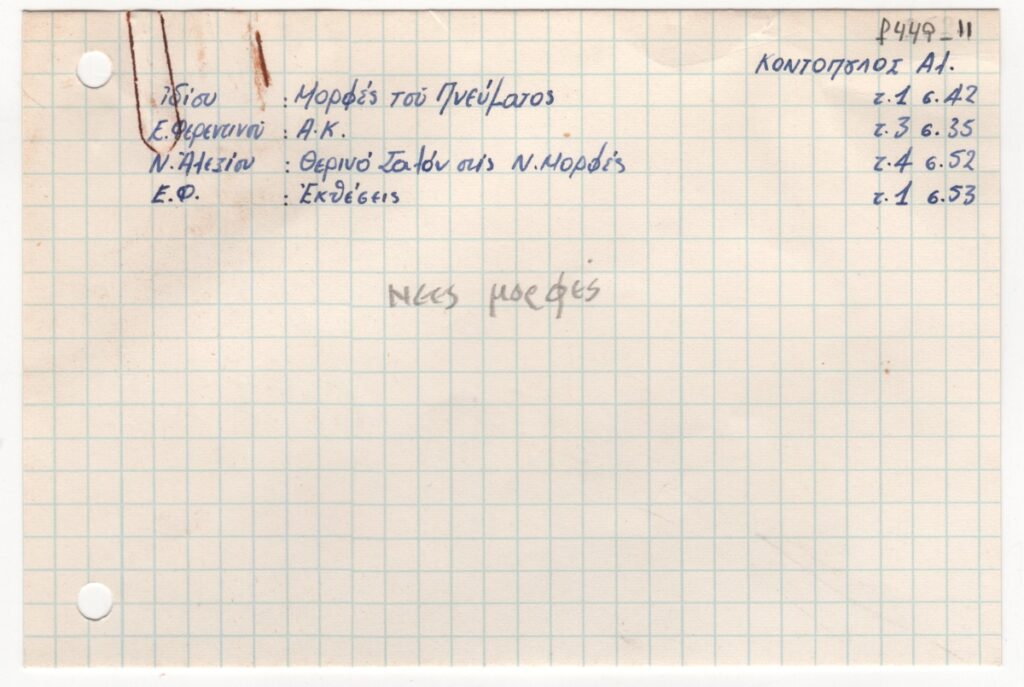 φ449-11
ΚΟΝΤΟΠΟΥΛΟΣ Αλ.
ἰδίου : Μορφές τοῦ Πνεύματος τ.1 σ.42
Ε.Φερεντινοῦ : Α.Κ. τ.3 σ.35
Ν.Ἀλεξίου : Θερινό Σαλόν στίς Ν.Μορφές τ.4 σ.52
Ε.Φ. : Ἐκθέσεις τ.1 σ.53
Νεες μορφές